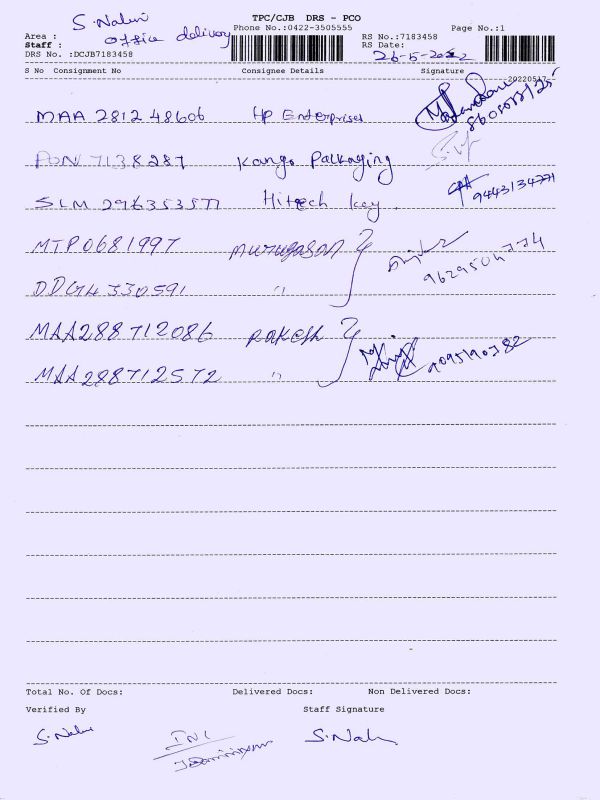 TPC/CJB DRS - PCO
S. Nalini
Phone No.:0422-3505555
Page No.:1
Area :
office delivery
RS No.:7183458
Staff :
RS Date:
DRS No. :DCJB7183458
26-5-2022
S No Consignment No Consignee Details Signature
20220517-
MAA 281248606 HP Enterprises
8608088125
PON 7138287 Kango Packaging
SLM 296353577 Hitech key.
9443134771
MTP0681997 murugasan
9629504774
DDG14330591 "
MAA288712086 Rakesh
9095190782
MAA288712572 "
Total No. Of Docs: Delivered Docs: Non Delivered Docs:
Verified By Staff Signature
S. Nalini
S. Nalini